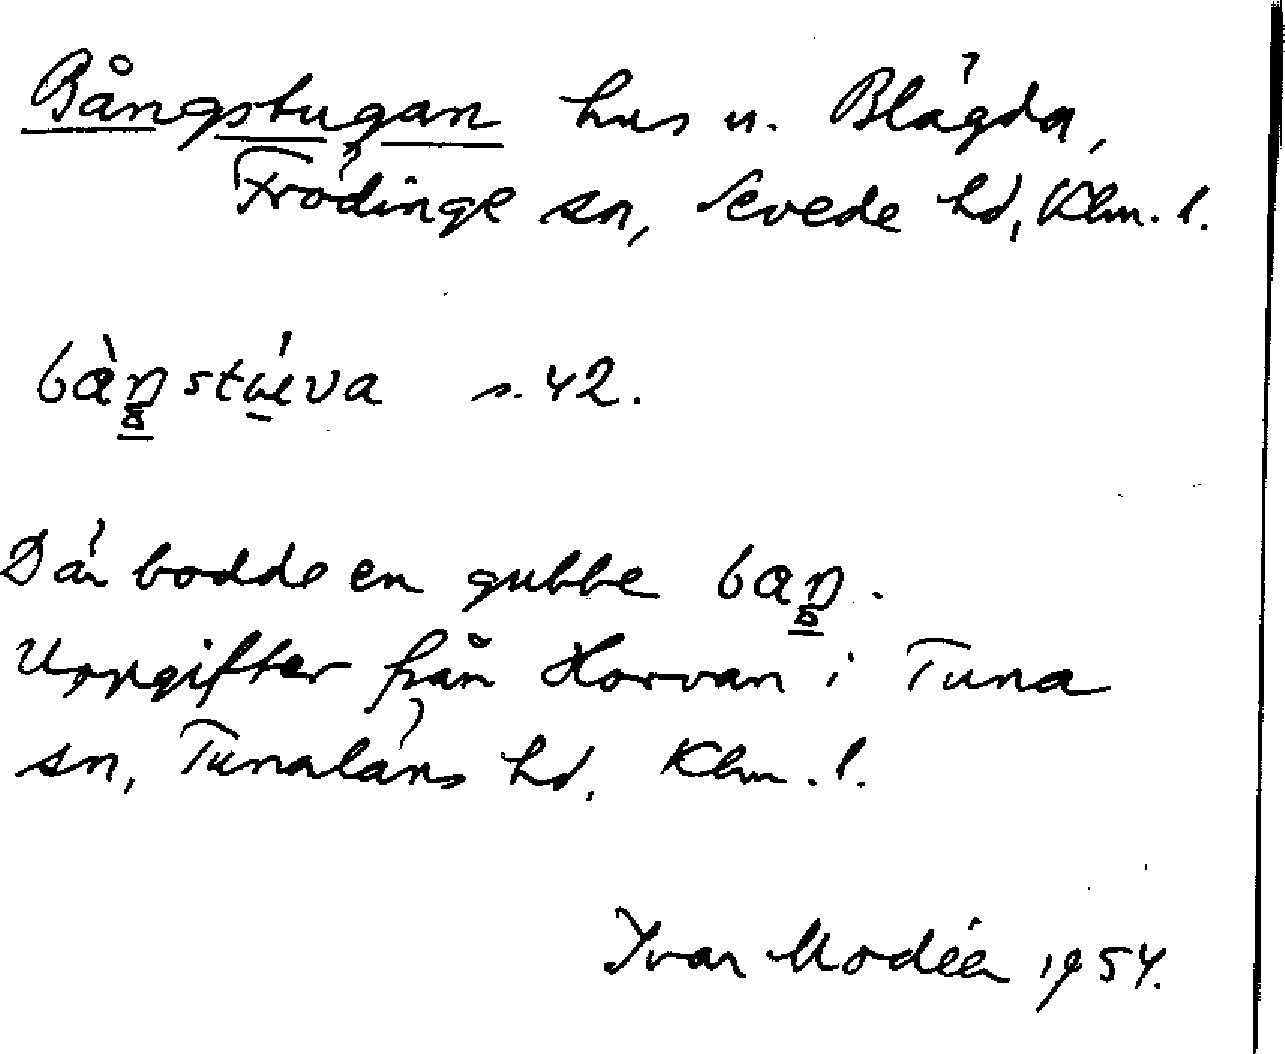 Bångstugan hus u. Blägda,
Frödinge sn, Sevede hd, Klm. l.
s. 42.
Där bodde en gubbe
Uppgifter från Horvan i Tuna
sn, Tunaläns hd. Klm. l.
Ivar Modéer 1954.